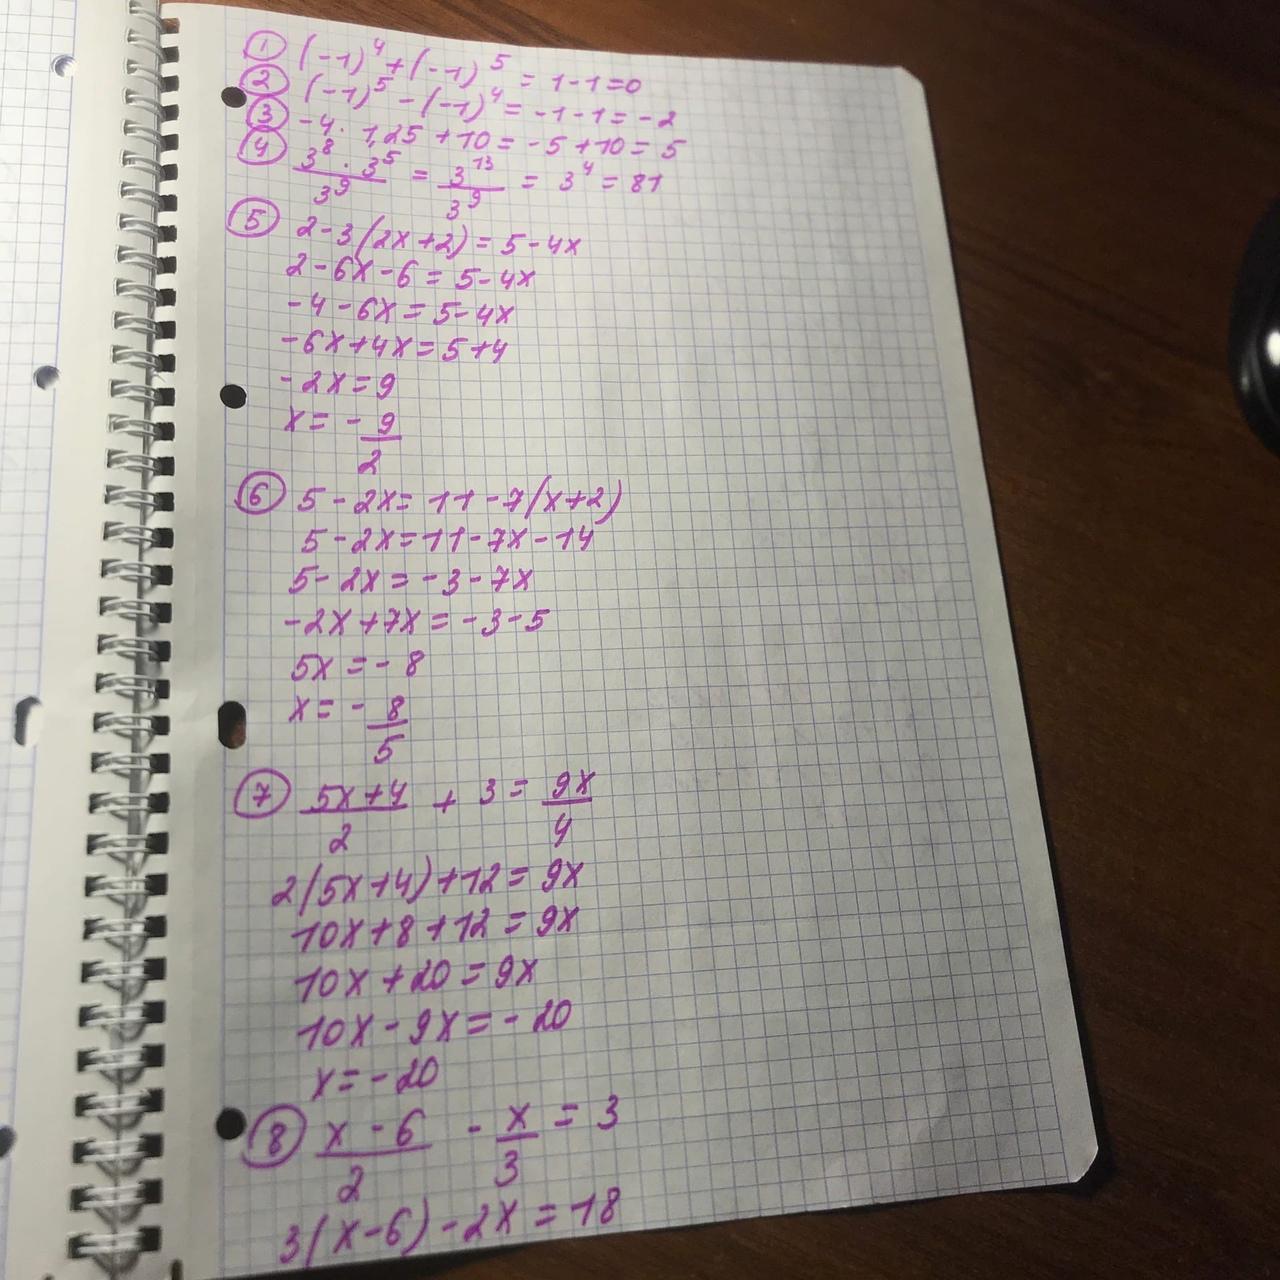 ① (-1)⁴ + (-1)⁵ = 1 - 1 = 0
② (-1)⁵ - (-1)⁴ = -1 - 1 = -2
③ -4 · 1,25 + 10 = -5 + 10 = 5
④ 3⁸ · 3⁵ / 3⁹ = 3¹³ / 3⁹ = 3⁴ = 81
⑤ 2 - 3(2x + 2) = 5 - 4x
2 - 6x - 6 = 5 - 4x
-4 - 6x = 5 - 4x
-6x + 4x = 5 + 4
-2x = 9
x = - 9/2
⑥ 5 - 2x = 11 - 7(x + 2)
5 - 2x = 11 - 7x - 14
5 - 2x = -3 - 7x
-2x + 7x = -3 - 5
5x = -8
x = - 8/5
⑦ (5x + 4)/2 + 3 = 9x/4
2(5x + 4) + 12 = 9x
10x + 8 + 12 = 9x
10x + 20 = 9x
10x - 9x = -20
x = -20
⑧ (x - 6)/2 - x/3 = 3
3(x - 6) - 2x = 18